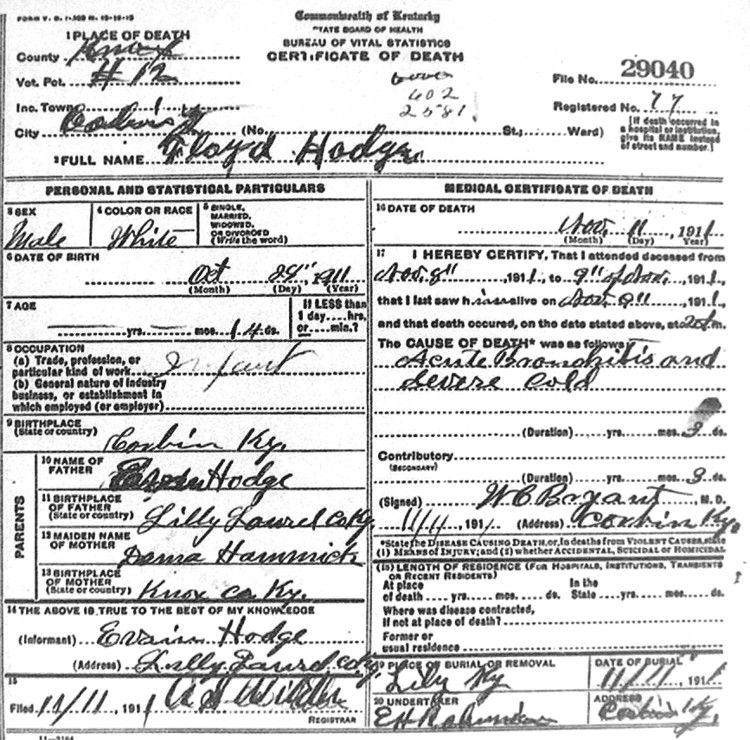 FORM V. S. 1-
Commonwealth of Kentucky
STATE BOARD OF HEALTH
BUREAU OF VITAL STATISTICS
CERTIFICATE OF DEATH
1 PLACE OF DEATH
County Knox
Vot. Pct. #12
Inc. Town
City Corbin Ky (No. St.; Ward)
402
2581
File No. 29040
Registered No. 77
[If death occurred in a hospital or institution, give its NAME instead of street and number.]
2 FULL NAME Floyd Hodge
PERSONAL AND STATISTICAL PARTICULARS
3 SEX
Male
4 COLOR OR RACE
White
5 SINGLE, MARRIED, WIDOWED, OR DIVORCED
(Write the word)
6 DATE OF BIRTH
Oct 1911
(Month) (Day) (Year)
7 AGE
yrs. mos. 14 ds.
If LESS than 1 day hrs. or min.?
8 OCCUPATION
(a) Trade, profession, or particular kind of work Infant
(b) General nature of industry business, or establishment in which employed (or employer)
9 BIRTHPLACE
(State or country) Corbin Ky.
PARENTS
10 NAME OF FATHER Hodge
11 BIRTHPLACE OF FATHER
(State or country) Lilly Laurel Co Ky
12 MAIDEN NAME OF MOTHER Hammick
13 BIRTHPLACE OF MOTHER
(State or country) Knox Co Ky.
14 THE ABOVE IS TRUE TO THE BEST OF MY KNOWLEDGE
(Informant) Hodge
(Address) Lilly Laurel Co Ky.
15
Filed 11/11, 1911
REGISTRAR
MEDICAL CERTIFICATE OF DEATH
16 DATE OF DEATH
Nov. 11, 1911
(Month) (Day) (Year)
17 I HEREBY CERTIFY, That I attended deceased from
Nov. 8", 1911, to 9" of Nov., 1911,
that I last saw him alive on Nov. 9", 1911,
and that death occured, on the date stated above, at m.
The CAUSE OF DEATH* was as follows
Acute Bronchitis and
Severe Cold
(Duration) yrs. mos. 3 ds.
Contributory
(SECONDARY)
(Duration) yrs. mos. 3 ds.
(Signed) W C Bryant, M. D.
11/11, 1911 (Address) Corbin Ky.
*State the DISEASE CAUSING DEATH, or, in deaths from VIOLENT CAUSES, state
(1) MEANS OF INJURY; and (2) whether ACCIDENTAL, SUICIDAL or HOMICIDAL
(18) LENGTH OF RESIDENCE (FOR HOSPITALS, INSTITUTIONS, TRANSIENTS OR RECENT RESIDENTS)
At place of death yrs. mos. ds. In the State yrs. mos. ds.
Where was disease contracted, if not at place of death?
Former or usual residence
19 PLACE OF BURIAL OR REMOVAL
Lily Ky
DATE OF BURIAL
11/11, 1911
20 UNDERTAKER
ADDRESS
Corbin Ky.